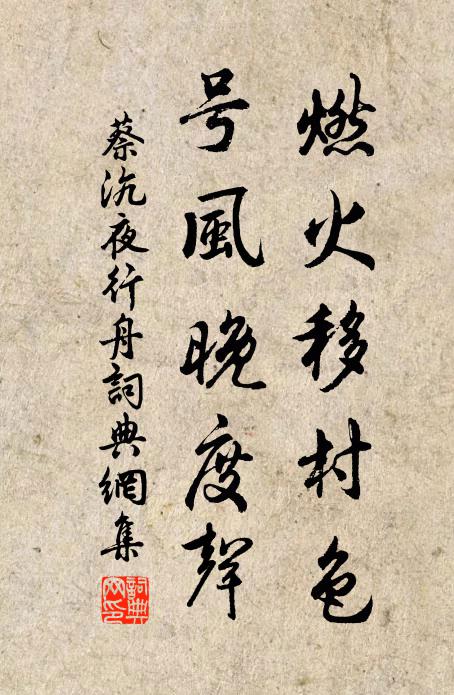 燃火移村色
号風晚度聲
蔡沆夜行舟詞典網集
詞典網印